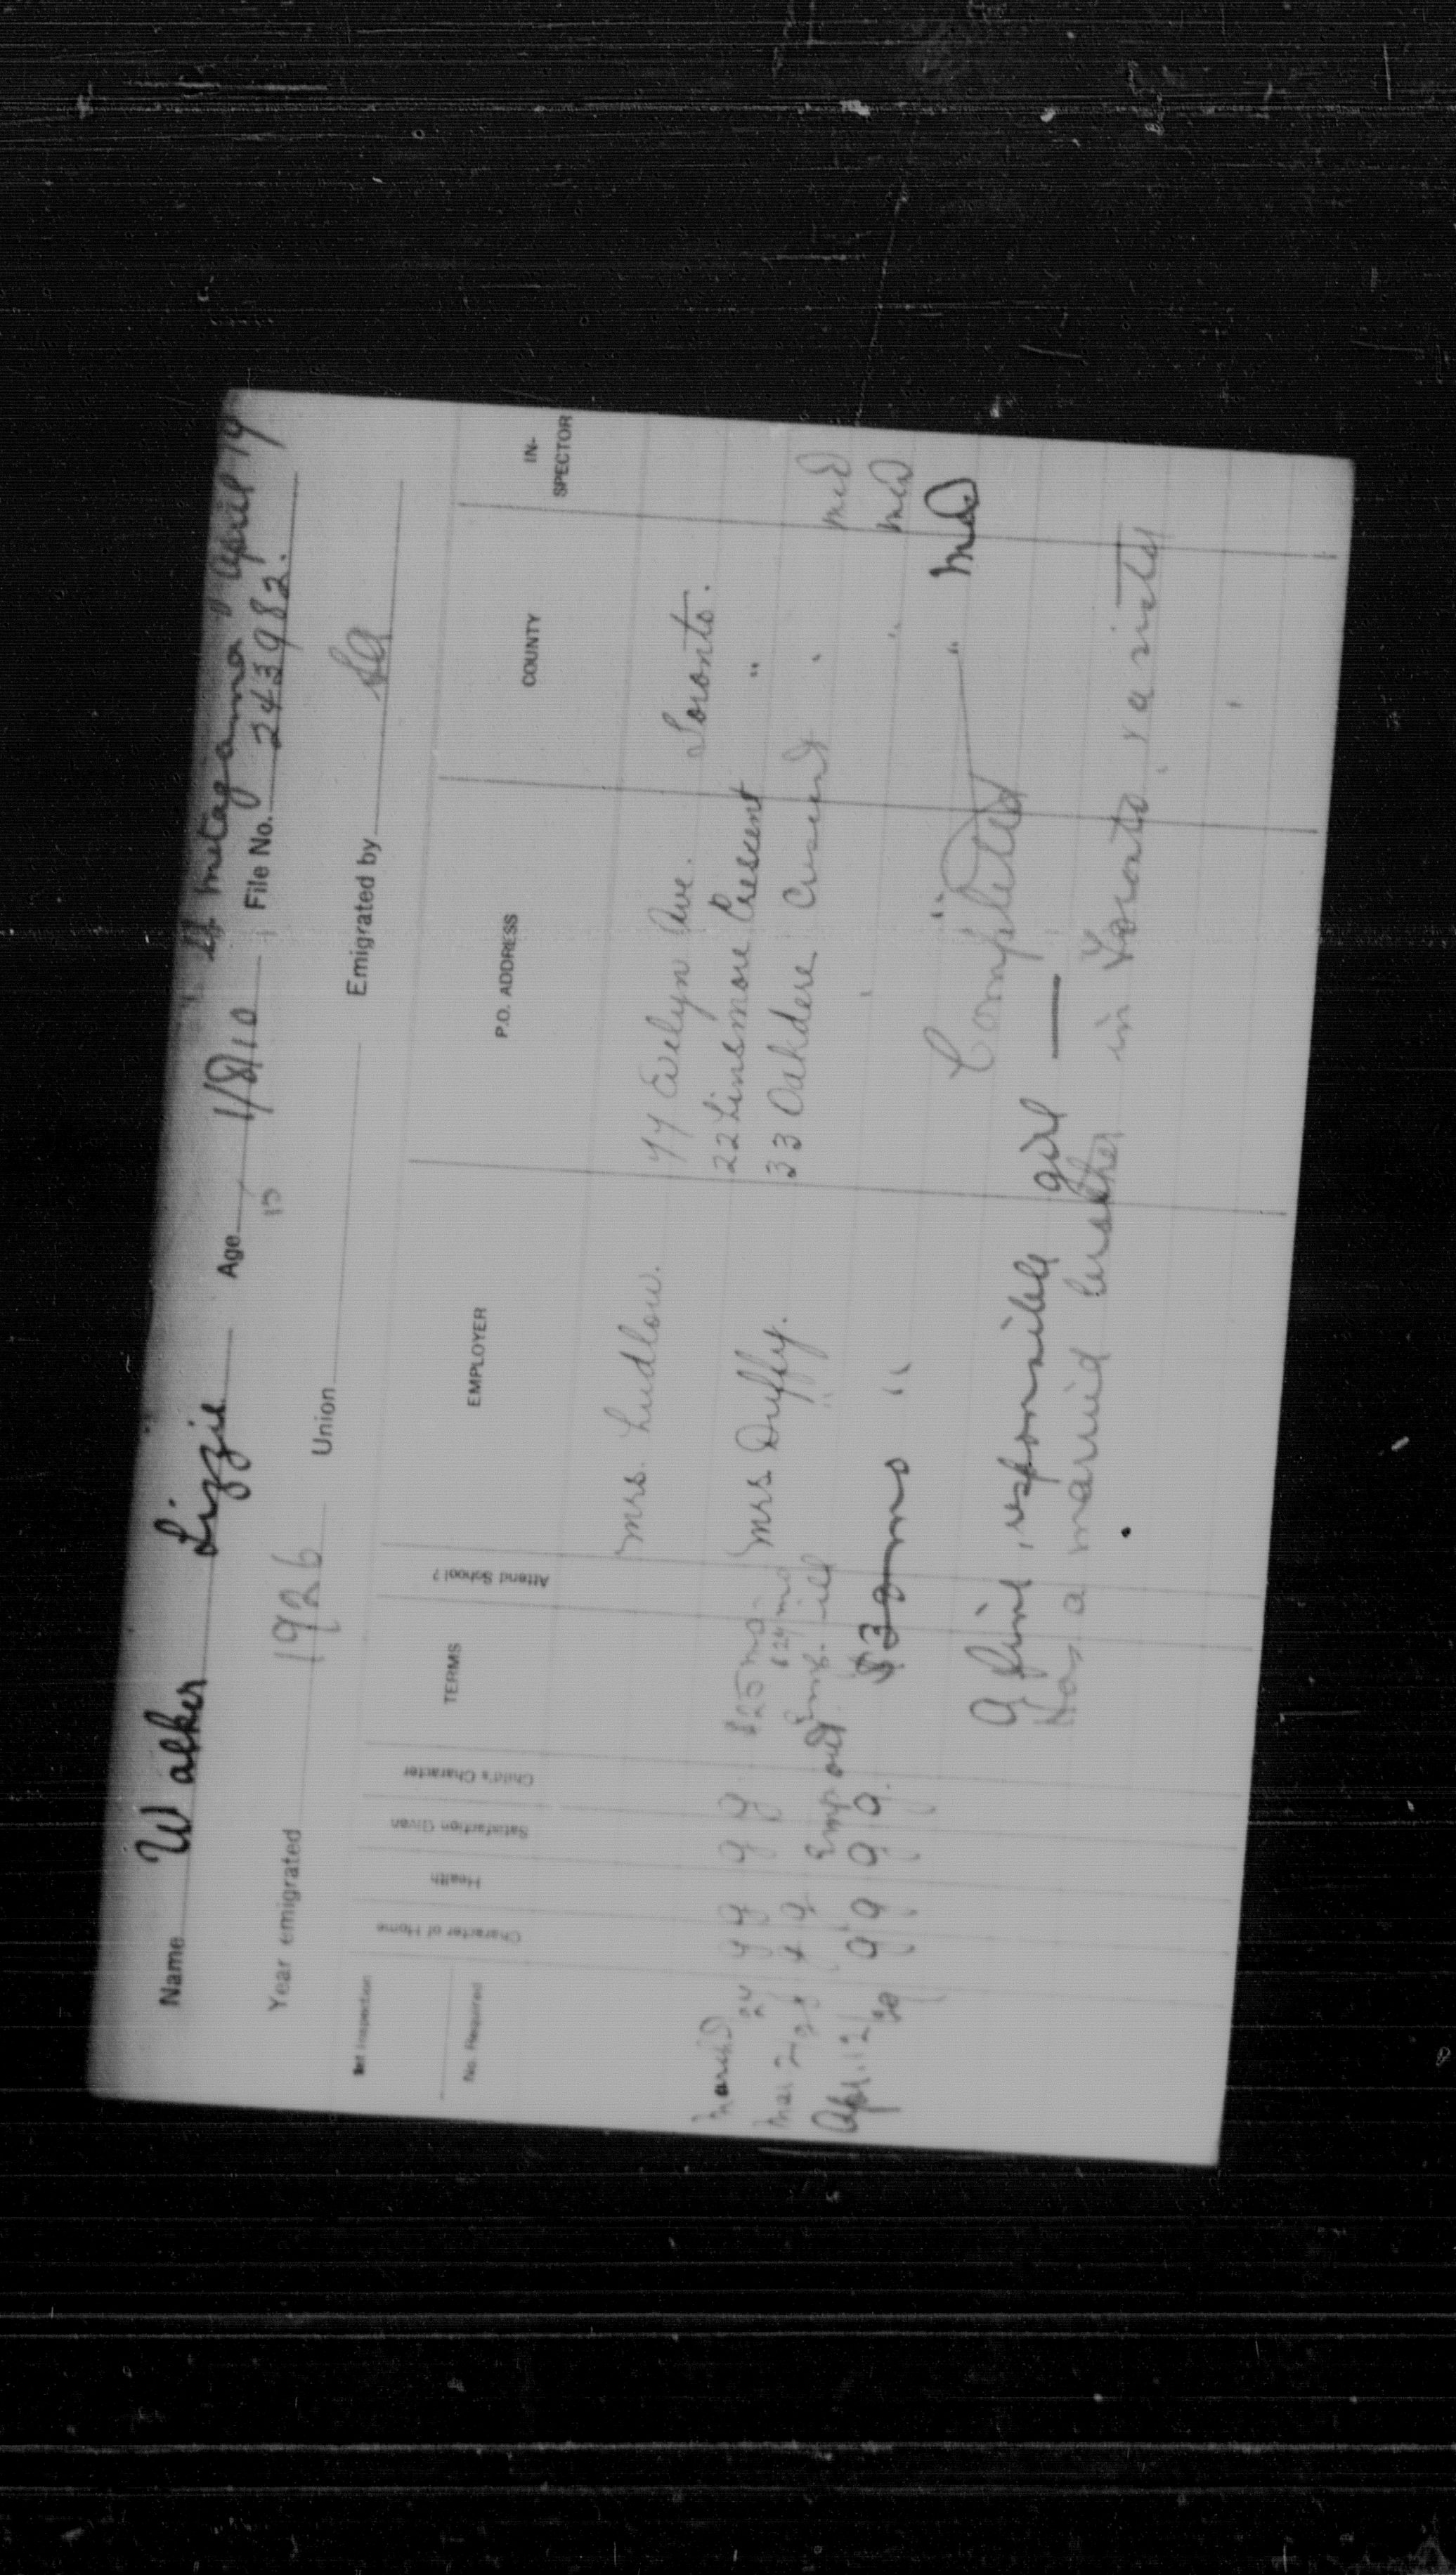 SS Metagama April 14
Name Walker Lizzie Age 15 1/8/10 File No. 243982.
Year emigrated 1926 Union Emigrated by SA
1st Inspection
No. Required
Character of Home Health Satisfaction Given Child's Character TERMS Attend School? EMPLOYER P.O. ADDRESS COUNTY IN-SPECTOR
Mrs. Ludlow. 77 Evelyn Ave. Toronto.
March 27 g g g g $25 mo. Mrs Duffy. 22 Linsmore Crescent "
Mar 2/28 g $24 mo " 33 Oakdere Crescent "
Emp. out. Emp. ill
Apl. 12/29 g g g g. $30 mo " " "
Completed
A fine, responsible girl —
Has a married brother in Toronto & a sister